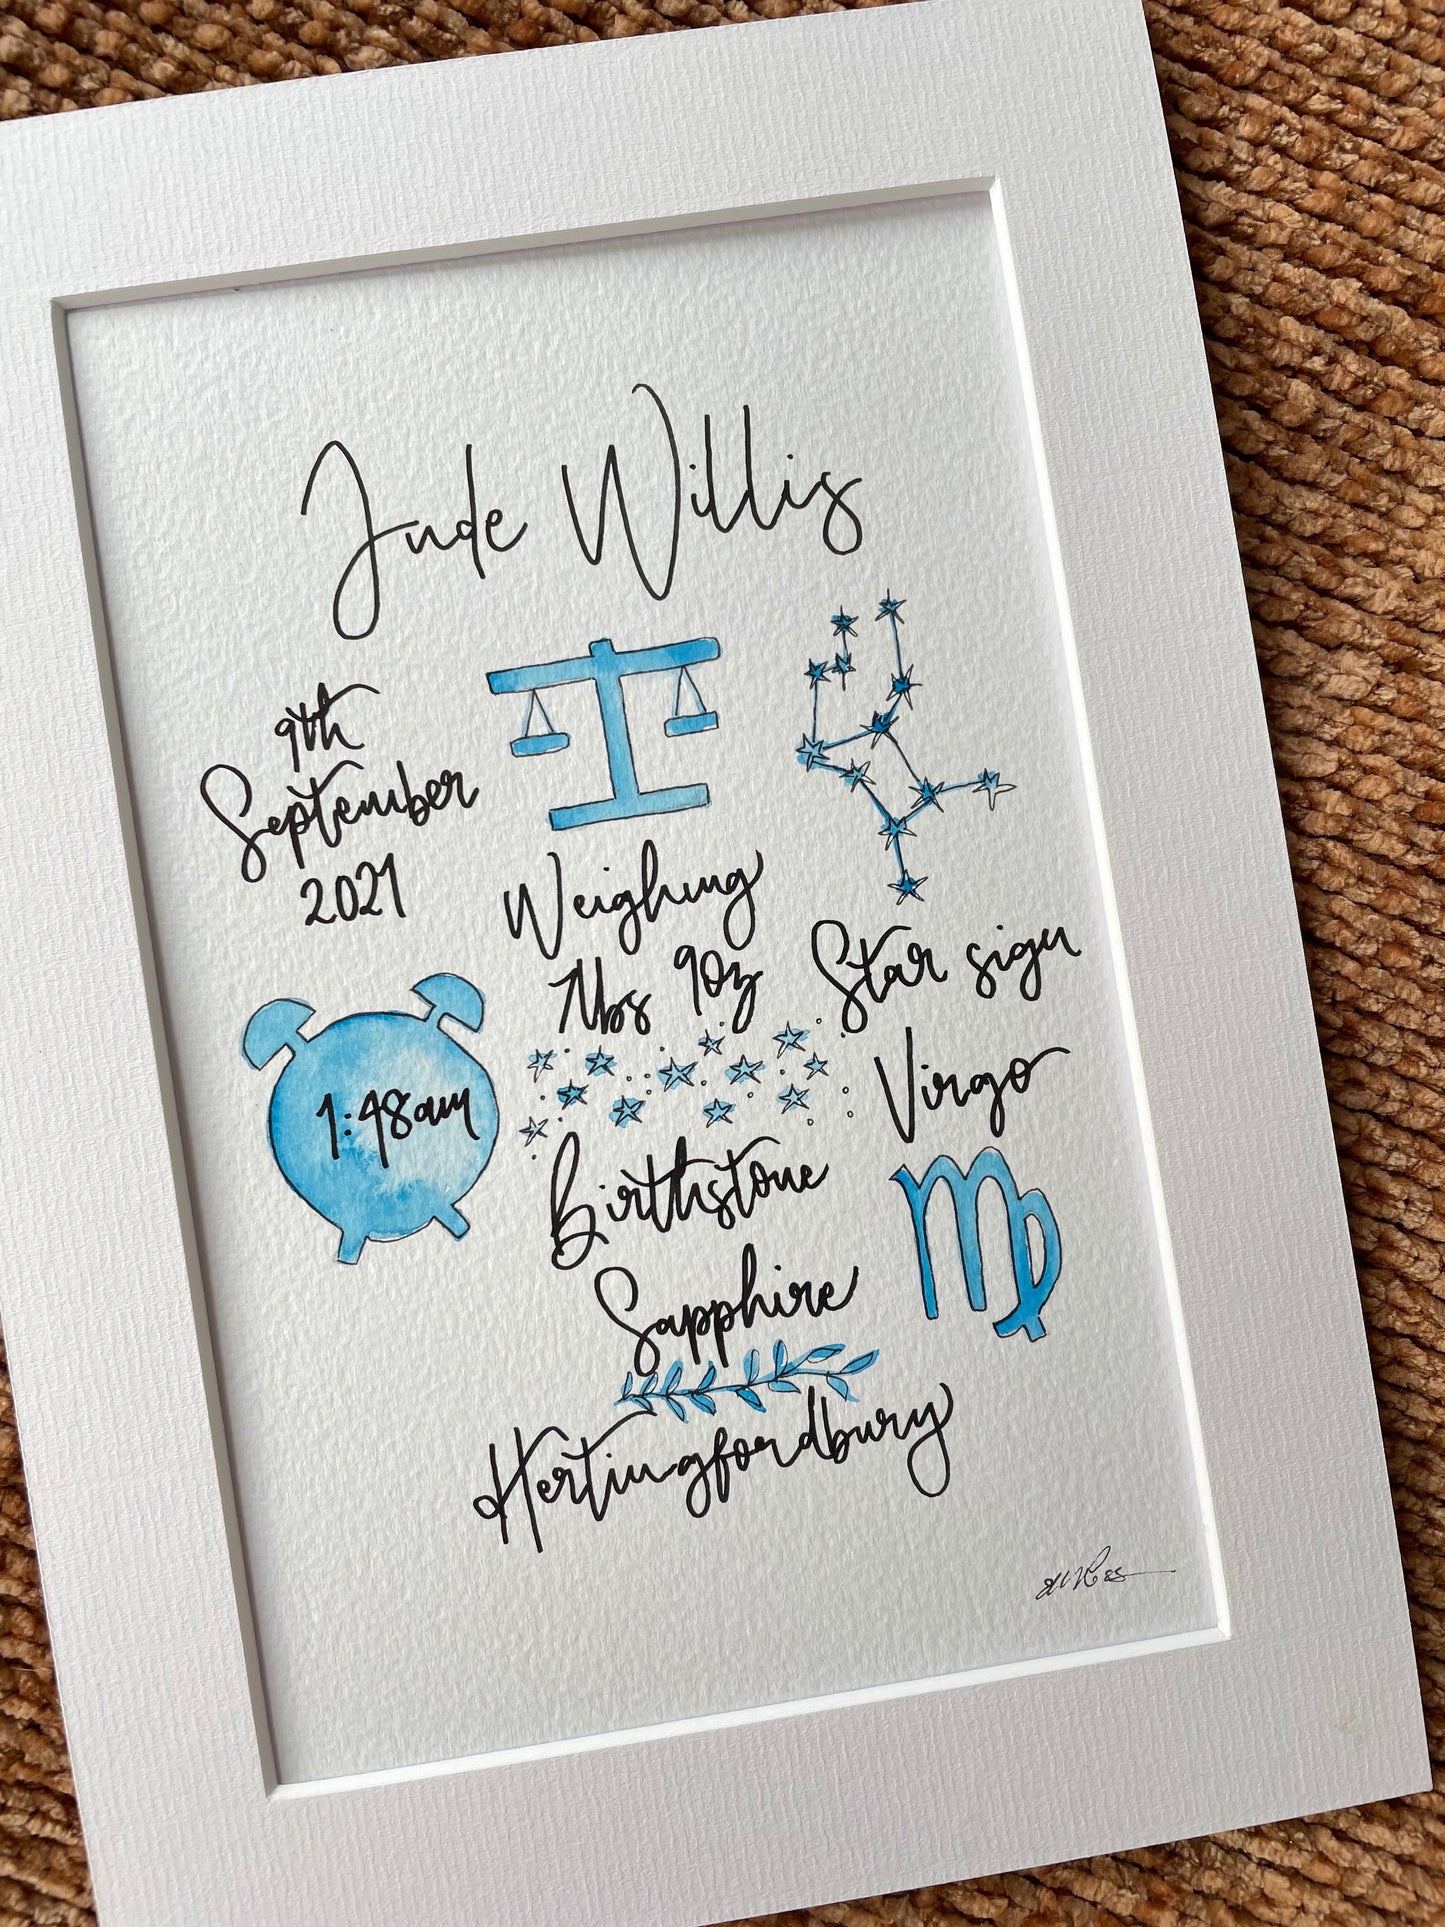 Jude Willis
9th
September
2021
Weighing
7lbs 9oz
Star sign
Virgo
1:48am
Birthstone
Sapphire
Hertingfordbury